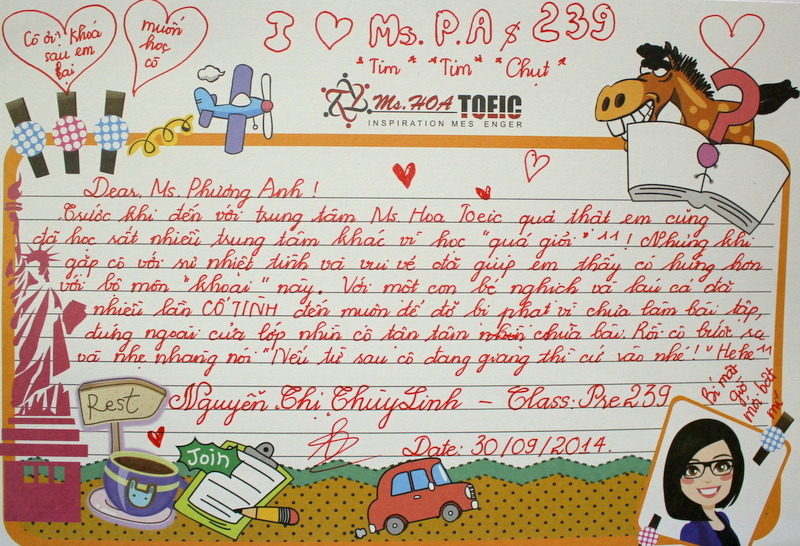 Cô ơi! Khoá
sau em
lại
muốn
học
cô
I ♡ Ms. P.A & 239
"Tim" "Tim" "Chụt"
Ms. HOA TOEIC
INSPIRATION MES ENGER
Dear, Ms. Phương Anh!
Trước khi đến với trung tâm Ms Hoa Toeic quả thật em cũng
đã học rất nhiều trung tâm khác vì học "quá giỏi" ^^! Nhưng khi
gặp cô với sự nhiệt tình và vui vẻ đã giúp em thấy có hứng hơn
với bộ môn "khoai" này. Với một con bé nghịch và láu cá đã
nhiều lần CỐ TÌNH đến muộn để đỡ bị phạt vì chưa làm bài tập,
đứng ngoài cửa lớp nhìn cô tận tâm chữa bài. Rồi cô bước ra
và nhẹ nhàng nói "Nếu từ sau cô đang giảng thì cứ vào nhé!" Hehe ^^
Nguyễn Thị Thùy Linh - Class: Pre 239
Date: 30/09/2014.
Rest
Join
Bí mật
giờ
mới bật
mí